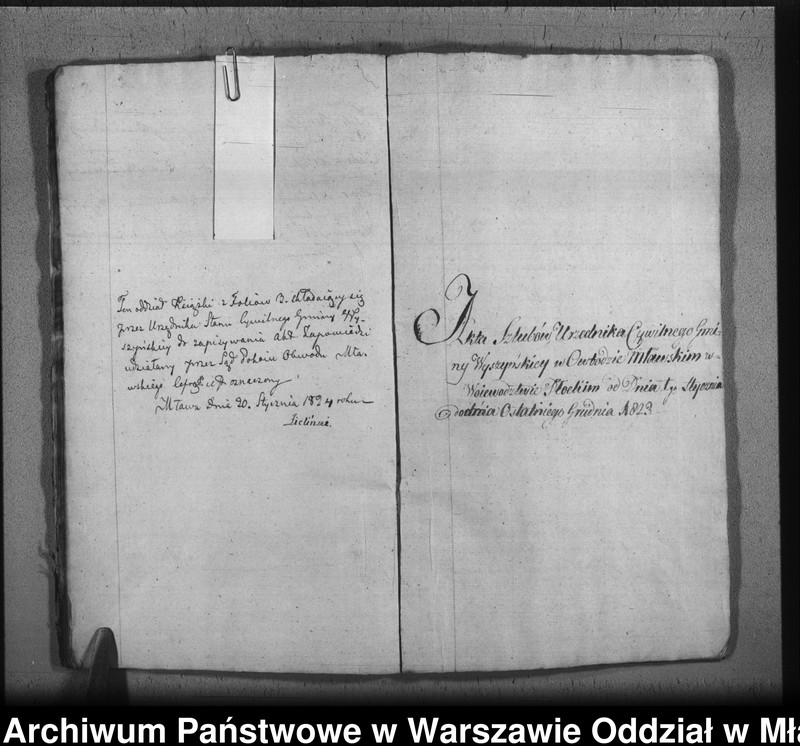 Ten oddział Książki z Foliów 3. składaiący się
przez Urzędnika Stanu Cywilnego Gminy Wy-
szyńskiey do zapisywania akt Zapowiedzi
udziałany przez Sąd Pokoiu Obwodu Mła-
wskiego
Mława dnia 20. Stycznia 1824 roku
Akta Szlubów Urzednika Cywilnego Gmi-
ny Wyszyńskiey w Obwodzie Mławskim w
Woiewodztwie Płockim od Dnia 1go Stycznia
do dnia Ostatniego Grudnia 1823
Archiwum Państwowe w Warszawie Oddział w Mła